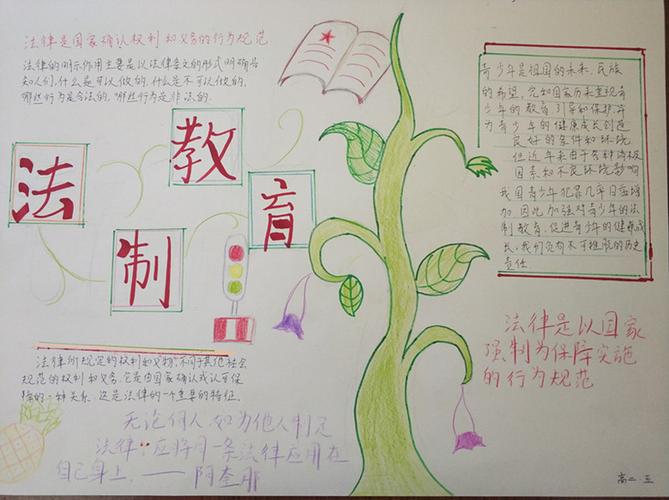 法律是国家确认权利和义务的行为规范
法律的明示作用主要是以法律条文的形式明确告
知人们,什么是可以做的,什么是不可以做的,
哪些行为是合法的,哪些行为是非法的.
法
制
教
育
法律所规定的权利和义务,不同于其他社会
规范的权利和义务,它是由国家确认或认可保
障的一种关系.这是法律的一个重要的特征.
无论何人,如为他人制定
法律,应将同一条法律应用在
自己身上.——阿奎那
青少年是祖国的未来,民族
的希望,党和国家历来重视青
少年的教育引导和保护,并
为青少年的健康成长创造
良好的条件和环境
但近年来由于各种消极
因素和不良环境影响
我国青少年犯罪几乎日益增
加,因此,加强对青少年的法
制教育,促进青少年的健康成
长,我们负有不可推脱的历史
责任
法律是以国家
强制为保障实施
的行为规范
高二.五